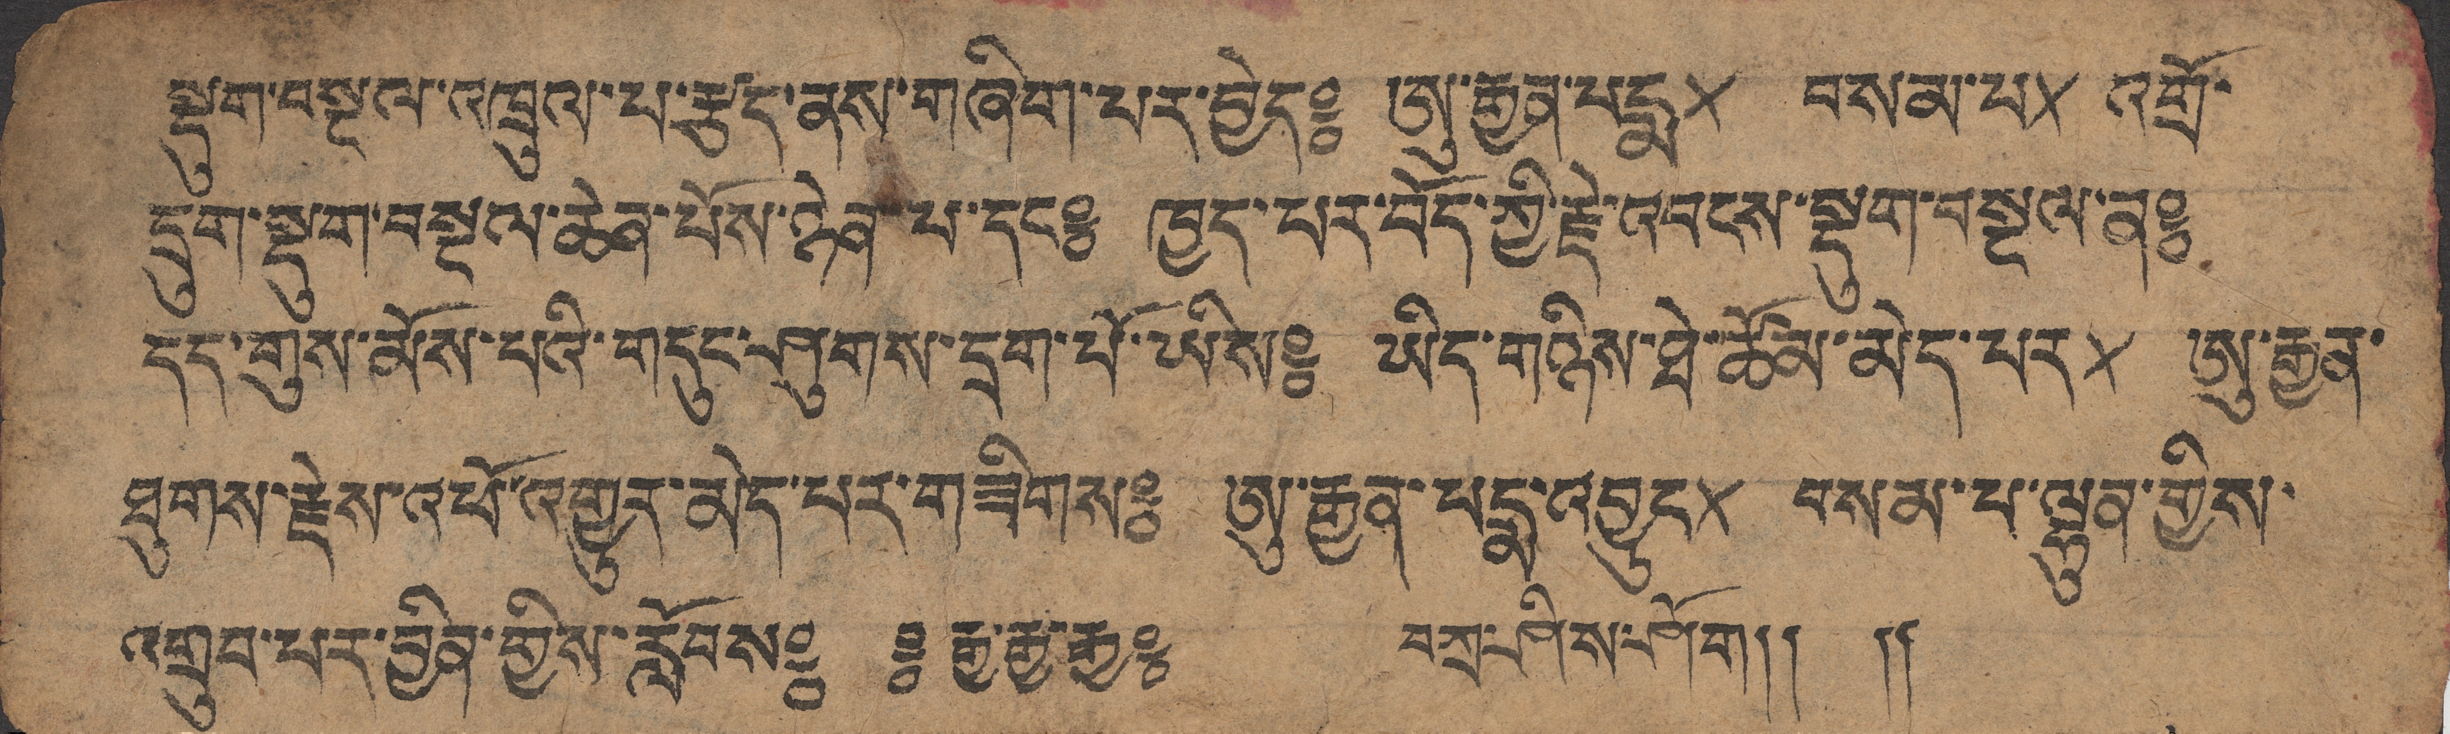 སྡུག་བསྔལ་འཁྲུལ་པ་རྩད་ནས་གཞིག་པར་བྱེད༔ ཨུ་རྒྱན་པདྨ༴ བསམ་པ༴ འགྲོ་
དྲུག་སྡུག་བསྔལ་ཆེན་པོས་ཉེན་པ་དང༔ ཁྱད་པར་བོད་ཀྱི་རྗེ་འབངས་སྡུག་བསྔལ་ན༔
དད་གུས་མོས་པའི་གདུང་ཤུགས་དྲག་པོ་ཡིས༔ ཡིད་གཉིས་ཐེ་ཚོམ་མེད་པར༴ ཨུ་རྒྱན་
ཐུགས་རྗེས་འཕོ་འགྱུར་མེད་པར་གཟིགས༔ ཨུ་རྒྱན་པདྨ་འབྱུང༴ བསམ་པ་ལྷུན་གྱིས་
འགྲུབ་པར་བྱིན་གྱིས་རློབས༔ ༔རྒྱ་རྒྱ་རྒྱ༔ བཀྲ་ཤིས་ཤོག།། །།